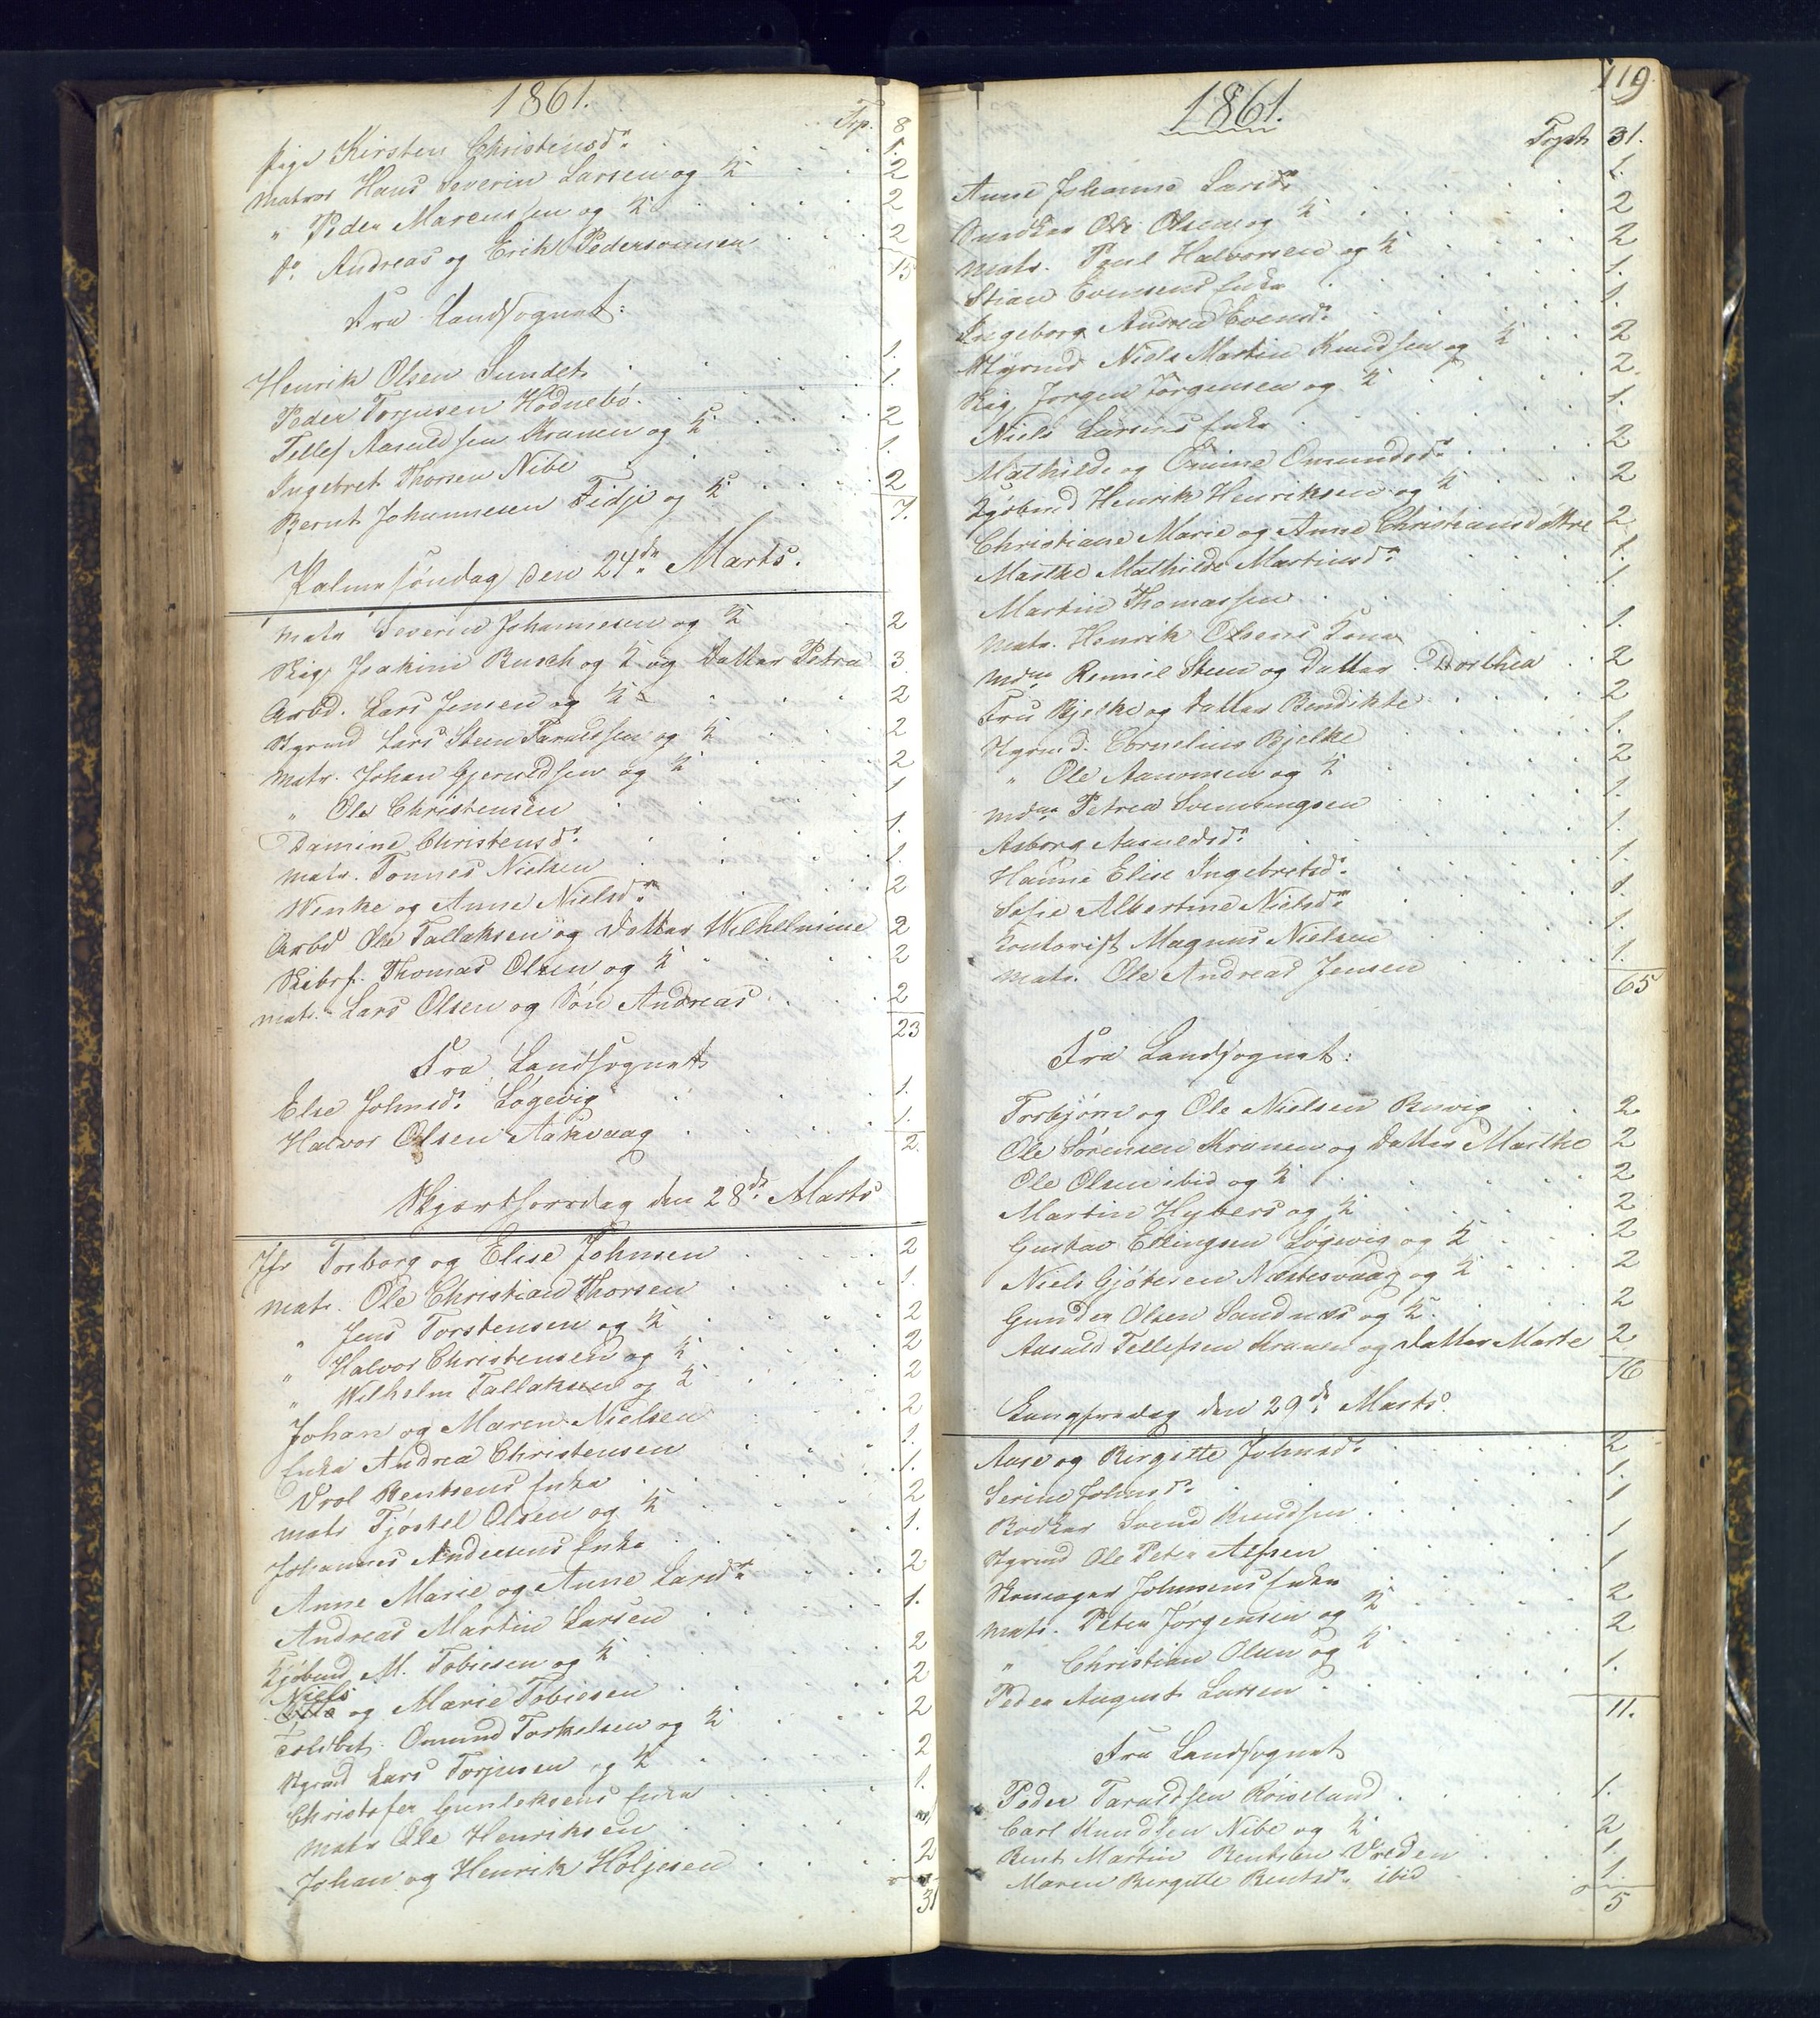 1861.
Trp. 8
Pige Kirsten Christensd. 1.
Matros Hans Severin Larsen og K. 2
" Peder Marcussen og K. 2
do. Andreas og Erik Pedersønnen 2
15
Fra Landsognet:
Henrik Olsen Sundet 1.
Peder Torjusen Hødnebø. 1.
Tellef Aasuldsen Kranen og K. 2
Ingebret Thorsen Nibe 1.
Bernt Johannesen Tidje og K. 2
7.
Palmesøndag den 24de Marts.
Matr Severin Johannesen og K 2
Skig. Joakim Busch og K og Datter Petra 3
Arbd. Lars Jensen og K 2
Styrmd Lars Steen Taraldsen og K 2
Matr. Johan Gjeruldsen og K 2
" Ole Christensen 1
Damine Christensd. 1.
Matr. Tønnes Nielsen 1.
Wenke og Anne Nielsd. 2
Arbd Ole Tallaksen og Datter Wilhelmine 2
Skibsf. Thomas Olsen og K 2
Matr. Lars Olsen og Søn Andreas 2
23
Fra Landsognet
Else Johnsd. Løgevig 1.
Halvor Olsen Aakvaag 1.
2.
Skjærthorsdag den 28de Marts
Jfr Torborg og Elise Johnsen 2
Matr. Ole Christian Thorsen 1.
" Jens Torstensen og K 2
" Halvor Christensen og K 2
" Wilhelm Tallaksen og K 2
Johan og Maren Nielsen 2
Enke Andrea Christensen 1.
Wrol Bentsens Enke 1.
Matr Tjøstel Olsen og K 2
Johannes Andersens Enke 1.
Anne Marie og Anne Larsd. 2
Andreas Martin Larsen 1.
Kjøbmd M. Tobiesen og K 2
Niels
og Marie Tobiesen 2
Toldbet. Omund Torkelsen og K 2
Styrmd Lars Torjusen og K 2
Christofer Gunleksens Enke 1.
Matr Ole Henriksen
Johan og Henrik Holjesen 2
31
119
1861.
Trpt 31.
Anne Johanne Larsd. 1.
Snedker Ole Olsen og K 2
Matr. Poul Halvorsen og K 2
Stian Evensens Enke 1.
Ingeborg Andrea Evensd. 1.
Styrmd Niels Martin Knudsen og K 2
Skig. Jørgen Jørgensen og K 2.
Niels Larsens Enke 1.
Mathilde og Omine Omundsd. 2
Kjøbmd Henrik Henriksen og K 2
Christiane Marie og Anne Christiansdøttre 2.
Marthe Mathilde Martinsd. 1.
Martin Thomassen 1.
Matr. Henrik Olsens Kone 1.
Mdme Rennie Steen og Datter Dorthea 2
Fru Bjelke og Datter Bendikte 2
Styrmd. Cornelius Bjelke 1.
" Ole Aanonsen og K 2
Mdme Petrea Svennungsen 1.
Aaborg Aasuldsd. 1.
Hanne Elise Ingebretsd. 1.
Sofie Albertine Nielsd. 1.
Contorist Magnus Nielsen 1.
Matr. Ole Andreas Jensen 1.
65
Fra Landsognet:
Torbjørn og Ole Nielsen Buvig 2
Ole Sørensen Kranen og Datter Marthe 2
Ole Olsen ibid og K 2
Martin Hybers og K 2
Gustav Ellingsen Løgevig og K 2
Niels Gjøtesen Næstesvaag og K 2
Gunder Olsen Sandnæs og K. 2
Aasuld Tellefsen Kranen og Datter Marte 2
16
Langfredag den 29de Marts.
Aase og Birgitte Johnsd. 2
Serine Johnsd. 1.
Bødker Svend Knudsen 1
Styrmd Ole Peter Alfsen 1
Johnsens Enke 1
Matr. Peter Jørgensen og K 2
" Christian Olsen og K 2
Peder August Larsen 1.
11.
Fra Landsognet
Peder Taraldsen Røiseland 1.
Carl Knudsen Nibe og K 2
Bent Martin Bentsen Vreden 1.
Maren Birgitte Bentsd. ibid 1.
5